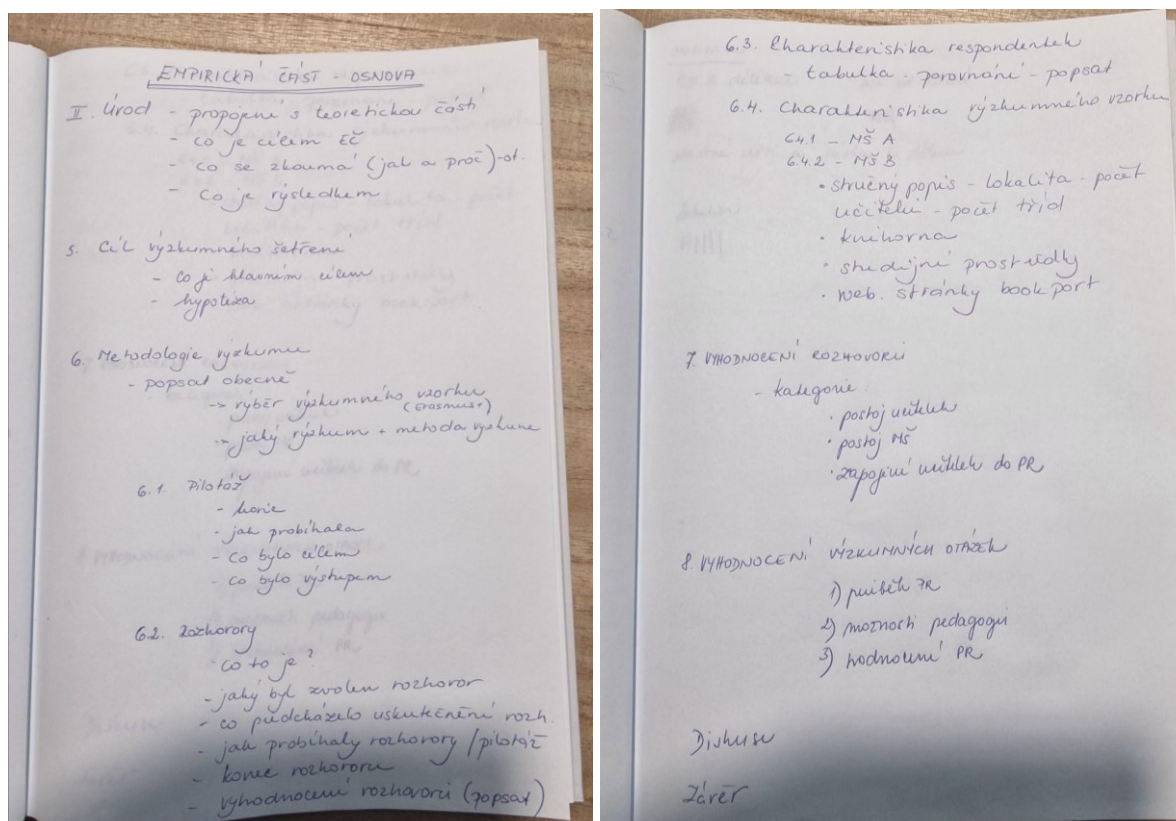 EMPIRICKÁ ČÁST - OSNOVA
II. Úvod - propojení s teoretickou částí
- co je cílem EČ
- co se zkoumá (jak a proč) - ot.
- co je výsledkem
5. Cíl výzkumného šetření
- co je hlavním cílem
- hypotéza
6. Metodologie výzkumu
- popsat obecně
-> výběr výzkumného vzorku
(Erasmus+)
-> jaký výzkum + metoda výzkumu
6.1. Pilotáž
-
- jak probíhala
- co bylo cílem
- co bylo výstupem
6.2. Rozhovory
- co to je?
- jaký byl zvolen rozhovor
- co předcházelo uskutečnění rozh.
- jak probíhaly rozhovory / pilotáž
- konec rozhovoru
- vyhodnocení rozhovorů (popsat)
6.3. Charakteristika respondentek
- tabulka - porovnání - popsat
6.4. Charakteristika výzkumného vzorku
6.4.1 - MŠ A
6.4.2 - MŠ B
• stručný popis - lokalita - počet
učitelů - počet tříd
• knihovna
• studijní prostředky
• web. stránky bookport
7. VYHODNOCENÍ ROZHOVORŮ
- kategorie
• postoj učitelek
• postoj MŠ
• zapojení učitelek do PR
8. VYHODNOCENÍ VÝZKUMNÝCH OTÁZEK
1) průběh PR
2) možnosti pedagogů
3) hodnocení PR
Diskuse
Závěr